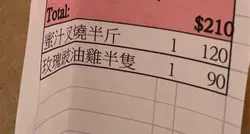 Total: $210
蜜汁叉燒半斤 1 120
玫瑰豉油雞半隻 1 90